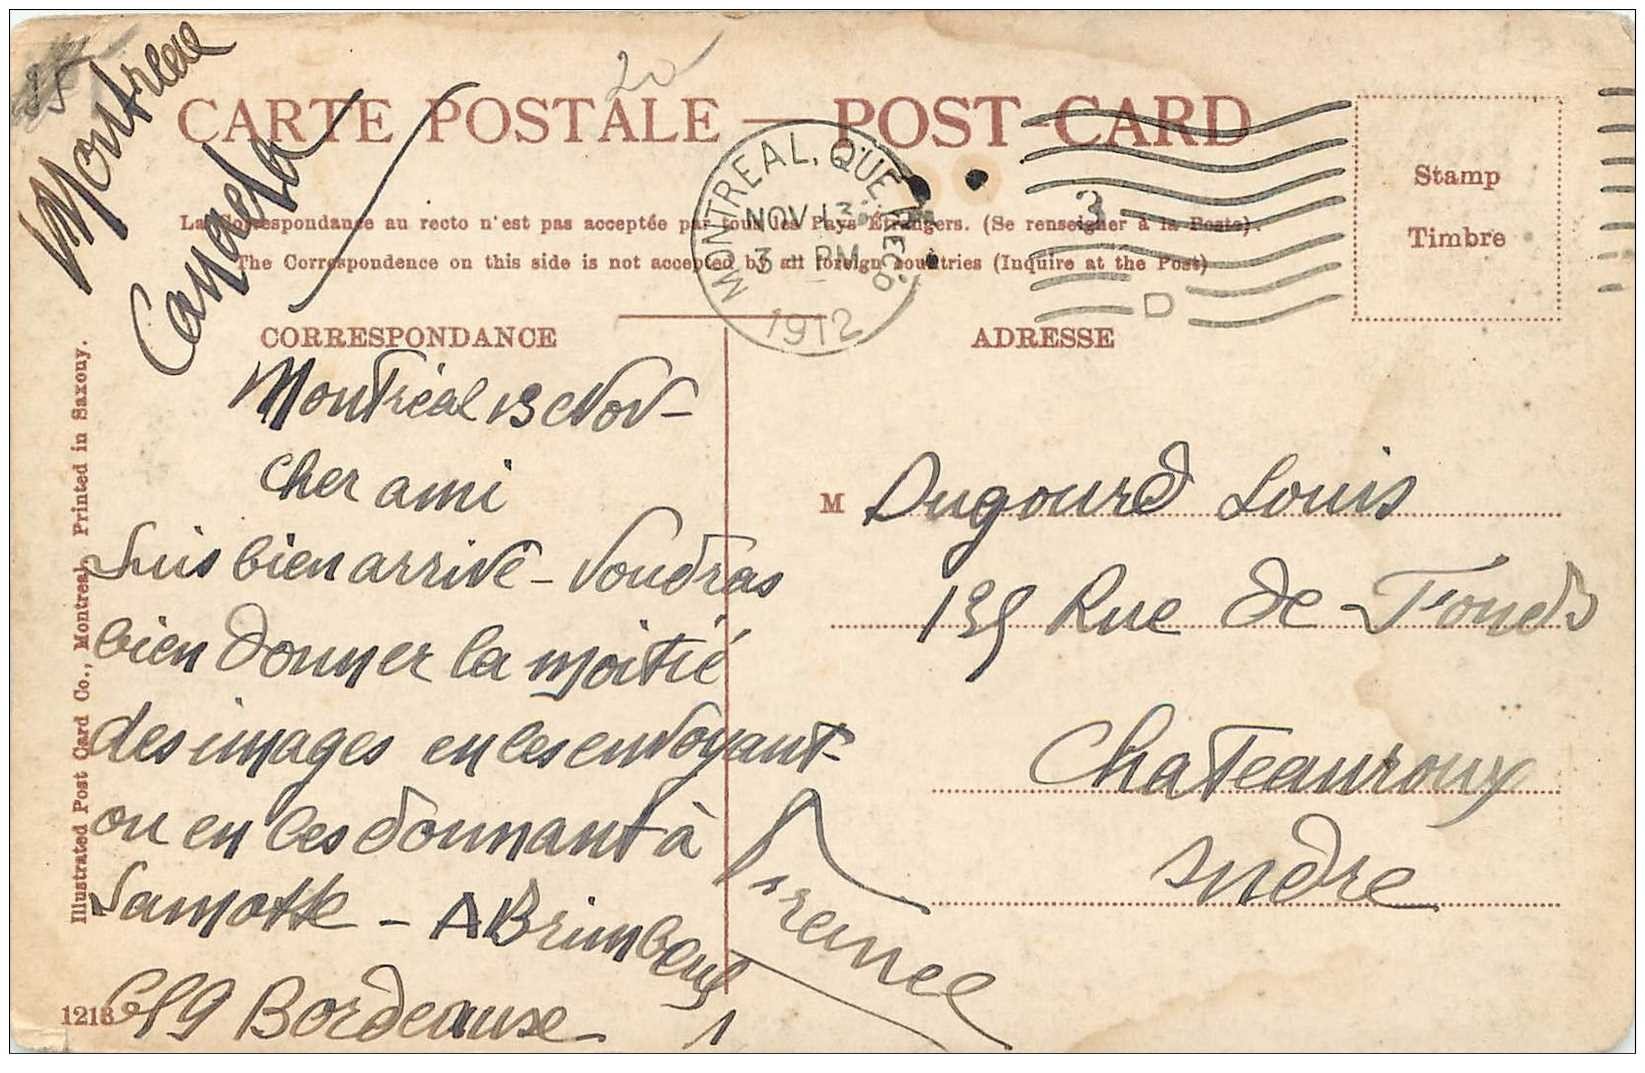 25
20
Montreal
Canada
CARTE POSTALE — POST-CARD
MONTREAL, QUE
NOV 13
3 - PM
1912
3
D
Stamp
Timbre
La Correspondance au recto n'est pas acceptée par tous les Pays Etrangers. (Se renseigner à la Poste).
The Correspondence on this side is not accepted by all foreign countries (Inquire at the Post)
CORRESPONDANCE
ADRESSE
Montréal 13 Nov-
Cher ami
Suis bien arrivé - Voudras
bien donner la moitié
des images en les envoyant
ou en les donnant à
Lamotte - A Brimbeuf
Bordeaux
M Dugourd Louis
139 Rue de Fonds
Chateauroux
Indre
France
Illustrated Post Card Co., Montreal. Printed in Saxony.
1213